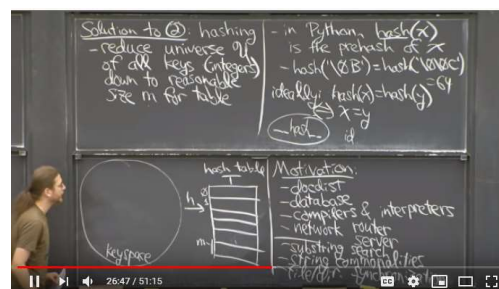 Solution to ②: hashing
- reduce universe U
of all keys (integers)
down to reasonable
size m for table
- in Python, hash(x)
is the prehash of x
- hash('\0B')=hash('\0\0C')
=64
ideally: hash(x)=hash(y)
⇔ x=y
__hash__
id
keyspace
h
hash table
T
0
1
m-1
Motivation:
- docdist
- database
- compilers & interpreters
- network router
server
- substring search
- string commonalities
- file/dir. synchronization
26:47 / 51:15
CC